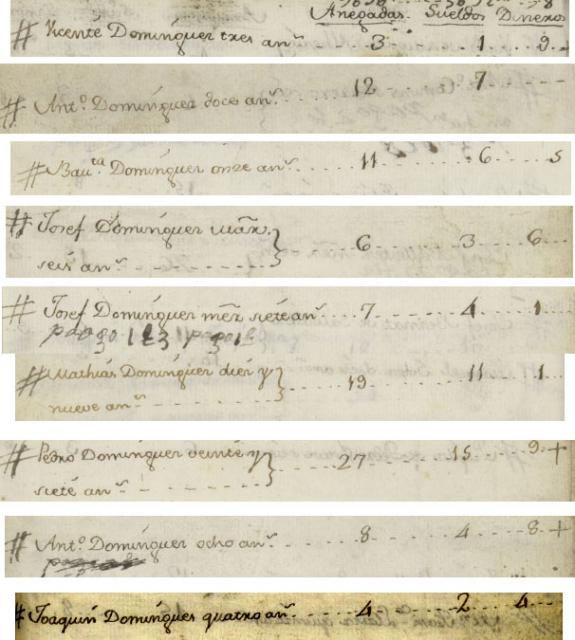 Anegadas. Sueldos Dineros
# Vicente Dominguez tres an.s . . . 3 . . . 1 . . 9 .
# Ant.o Dominguez doce an.s . . . 12 . . . 7 . . .
# Bau.ta Dominguez onze an.s . . . 11 . . . 6 . . . 5
# Josef Dominguez maỹr.
seis an.s . . . } . . . 6 . . . 3 . . . 6 . .
# Josef Dominguez mẽr siete an.s . . 7 . . . 4 . . . 1 . .
pago
# Mathias Dominguez diez y
nueve an.s . . . } . . . 19 . . . 11 . . 1 . .
# Pedro Dominguez veinte y
siete an.s . . . } . . . 27 . . . 15 . . . 9 +
# Ant.o Dominguez ocho an.s . . . 8 . . . 4 . . . 8 +
# Joaquin Dominguez quatro an.s . . 4 . . . 2 . . 4 . .